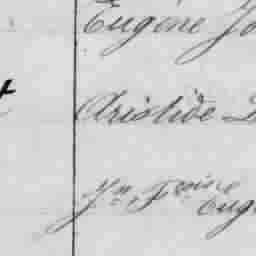 Eugène Jo
Aristide
Jn. Fçoise
Eug